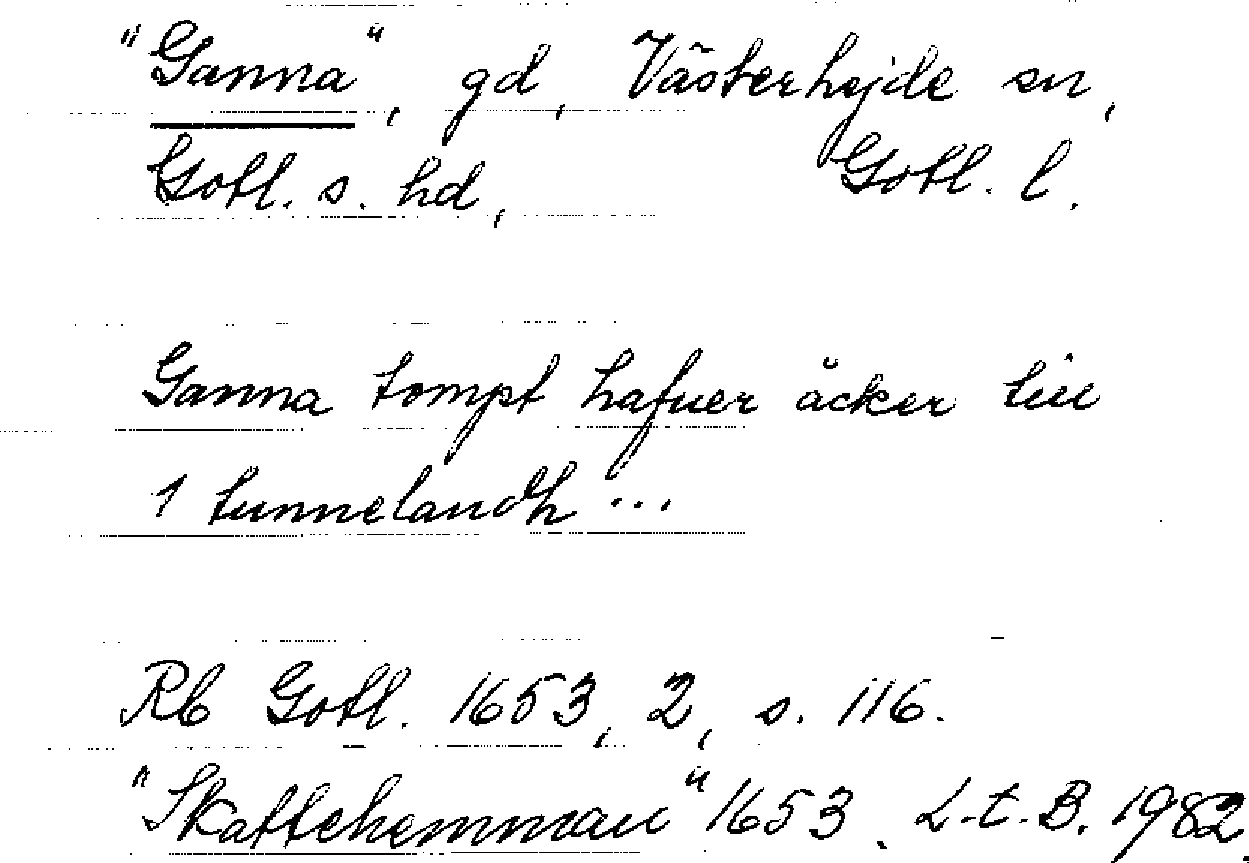 "Ganna", gd, Västerhejde sn,
Gotl. s. hd, Gotl. l.
Ganna tompt hafuer äcker till
1 tunnelandh ...
Rb Gotl. 1653, 2, s. 116.
"Skattehemman" 1653. L-t. B. 1982.